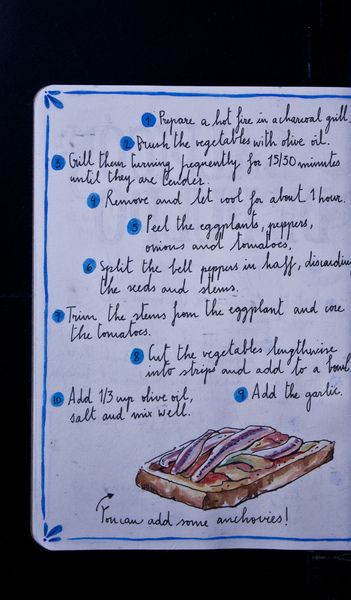 1 Prepare a hot fire in a charcoal grill.
2 Brush the vegetables with olive oil.
3 Grill them turning frequently for 15/30 minutes
until they are tender.
4 Remove and let cool for about 1 hour.
5 Peel the eggplants, peppers,
onions and tomatoes.
6 Split the bell peppers in half, discarding
the seeds and stems.
7 Trim the stems from the eggplant and core
the tomatoes.
8 Cut the vegetables lengthwise
into strips and add to a bowl.
9 Add the garlic.
10 Add 1/3 up olive oil,
salt and mix well.
You can add some anchovies!